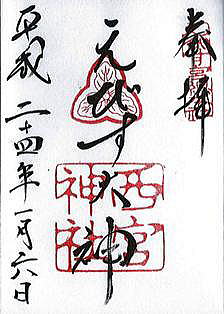 奉拝
えびす大神
西宮
神社
平成二十四年一月六日